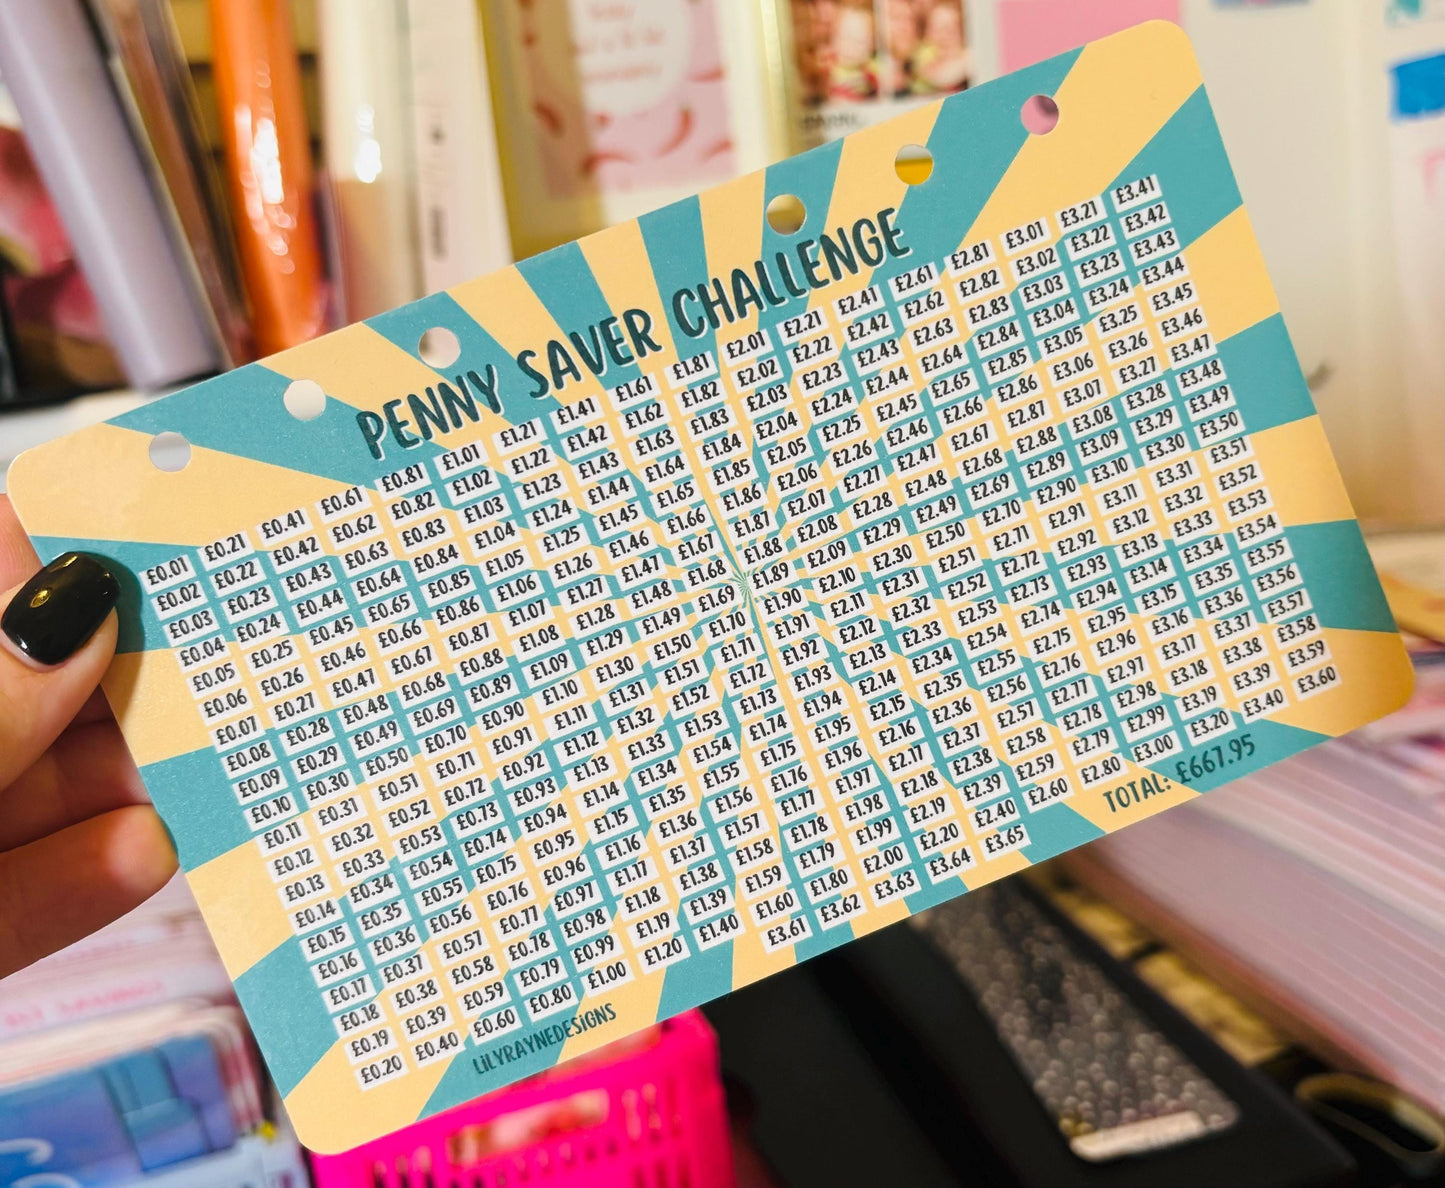 PENNY SAVER CHALLENGE
£0.01 £0.21 £0.41 £0.61 £0.81 £1.01 £1.21 £1.41 £1.61 £1.81 £2.01 £2.21 £2.41 £2.61 £2.81 £3.01 £3.21 £3.41
£0.02 £0.22 £0.42 £0.62 £0.82 £1.02 £1.22 £1.42 £1.62 £1.82 £2.02 £2.22 £2.42 £2.62 £2.82 £3.02 £3.22 £3.42
£0.03 £0.23 £0.43 £0.63 £0.83 £1.03 £1.23 £1.43 £1.63 £1.83 £2.03 £2.23 £2.43 £2.63 £2.83 £3.03 £3.23 £3.43
£0.04 £0.24 £0.44 £0.64 £0.84 £1.04 £1.24 £1.44 £1.64 £1.84 £2.04 £2.24 £2.44 £2.64 £2.84 £3.04 £3.24 £3.44
£0.05 £0.25 £0.45 £0.65 £0.85 £1.05 £1.25 £1.45 £1.65 £1.85 £2.05 £2.25 £2.45 £2.65 £2.85 £3.05 £3.25 £3.45
£0.06 £0.26 £0.46 £0.66 £0.86 £1.06 £1.26 £1.46 £1.66 £1.86 £2.06 £2.26 £2.46 £2.66 £2.86 £3.06 £3.26 £3.46
£0.07 £0.27 £0.47 £0.67 £0.87 £1.07 £1.27 £1.47 £1.67 £1.87 £2.07 £2.27 £2.47 £2.67 £2.87 £3.07 £3.27 £3.47
£0.08 £0.28 £0.48 £0.68 £0.88 £1.08 £1.28 £1.48 £1.68 £1.88 £2.08 £2.28 £2.48 £2.68 £2.88 £3.08 £3.28 £3.48
£0.09 £0.29 £0.49 £0.69 £0.89 £1.09 £1.29 £1.49 £1.69 £1.89 £2.09 £2.29 £2.49 £2.69 £2.89 £3.09 £3.29 £3.49
£0.10 £0.30 £0.50 £0.70 £0.90 £1.10 £1.30 £1.50 £1.70 £1.90 £2.10 £2.30 £2.50 £2.70 £2.90 £3.10 £3.30 £3.50
£0.11 £0.31 £0.51 £0.71 £0.91 £1.11 £1.31 £1.51 £1.71 £1.91 £2.11 £2.31 £2.51 £2.71 £2.91 £3.11 £3.31 £3.51
£0.12 £0.32 £0.52 £0.72 £0.92 £1.12 £1.32 £1.52 £1.72 £1.92 £2.12 £2.32 £2.52 £2.72 £2.92 £3.12 £3.32 £3.52
£0.13 £0.33 £0.53 £0.73 £0.93 £1.13 £1.33 £1.53 £1.73 £1.93 £2.13 £2.33 £2.53 £2.73 £2.93 £3.13 £3.33 £3.53
£0.14 £0.34 £0.54 £0.74 £0.94 £1.14 £1.34 £1.54 £1.74 £1.94 £2.14 £2.34 £2.54 £2.74 £2.94 £3.14 £3.34 £3.54
£0.15 £0.35 £0.55 £0.75 £0.95 £1.15 £1.35 £1.55 £1.75 £1.95 £2.15 £2.35 £2.55 £2.75 £2.95 £3.15 £3.35 £3.55
£0.16 £0.36 £0.56 £0.76 £0.96 £1.16 £1.36 £1.56 £1.76 £1.96 £2.16 £2.36 £2.56 £2.76 £2.96 £3.16 £3.36 £3.56
£0.17 £0.37 £0.57 £0.77 £0.97 £1.17 £1.37 £1.57 £1.77 £1.97 £2.17 £2.37 £2.57 £2.77 £2.97 £3.17 £3.37 £3.57
£0.18 £0.38 £0.58 £0.78 £0.98 £1.18 £1.38 £1.58 £1.78 £1.98 £2.18 £2.38 £2.58 £2.78 £2.98 £3.18 £3.38 £3.58
£0.19 £0.39 £0.59 £0.79 £0.99 £1.19 £1.39 £1.59 £1.79 £1.99 £2.19 £2.39 £2.59 £2.79 £2.99 £3.19 £3.39 £3.59
£0.20 £0.40 £0.60 £0.80 £1.00 £1.20 £1.40 £1.60 £1.80 £2.00 £2.20 £2.40 £2.60 £2.80 £3.00 £3.20 £3.40 £3.60
£3.61 £3.62 £3.63 £3.64 £3.65
LiLYRAYNEDESiGNS
TOTAL: £667.95